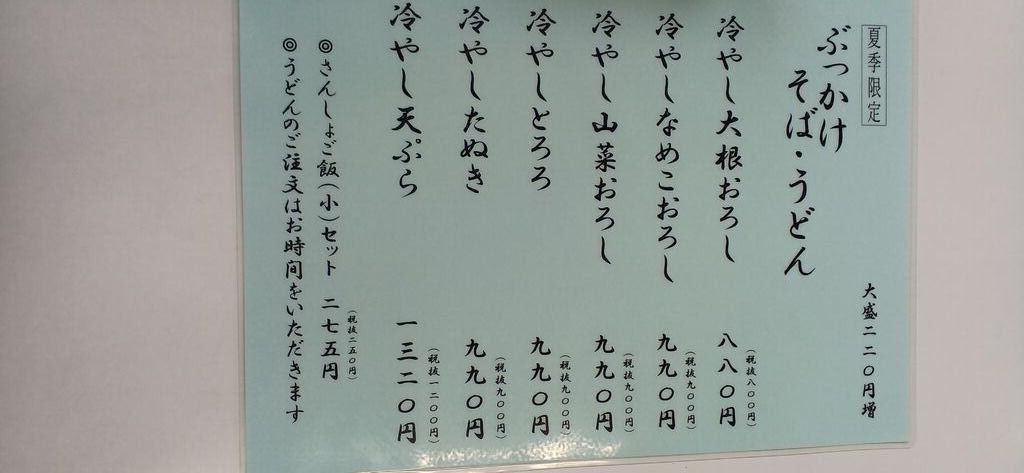 夏季限定
ぶっかけ
そば・うどん
大盛二二〇円増
冷やし大根おろし 八八〇円
(税抜八〇〇円)
冷やしなめこおろし 九九〇円
(税抜九〇〇円)
冷やし山菜おろし 九九〇円
(税抜九〇〇円)
冷やしとろろ 九九〇円
(税抜九〇〇円)
冷やしたぬき 九九〇円
(税抜九〇〇円)
冷やし天ぷら 一三二〇円
(税抜一二〇〇円)
◎さんしょご飯(小)セット 二七五円
(税抜二五〇円)
◎うどんのご注文はお時間をいただきます